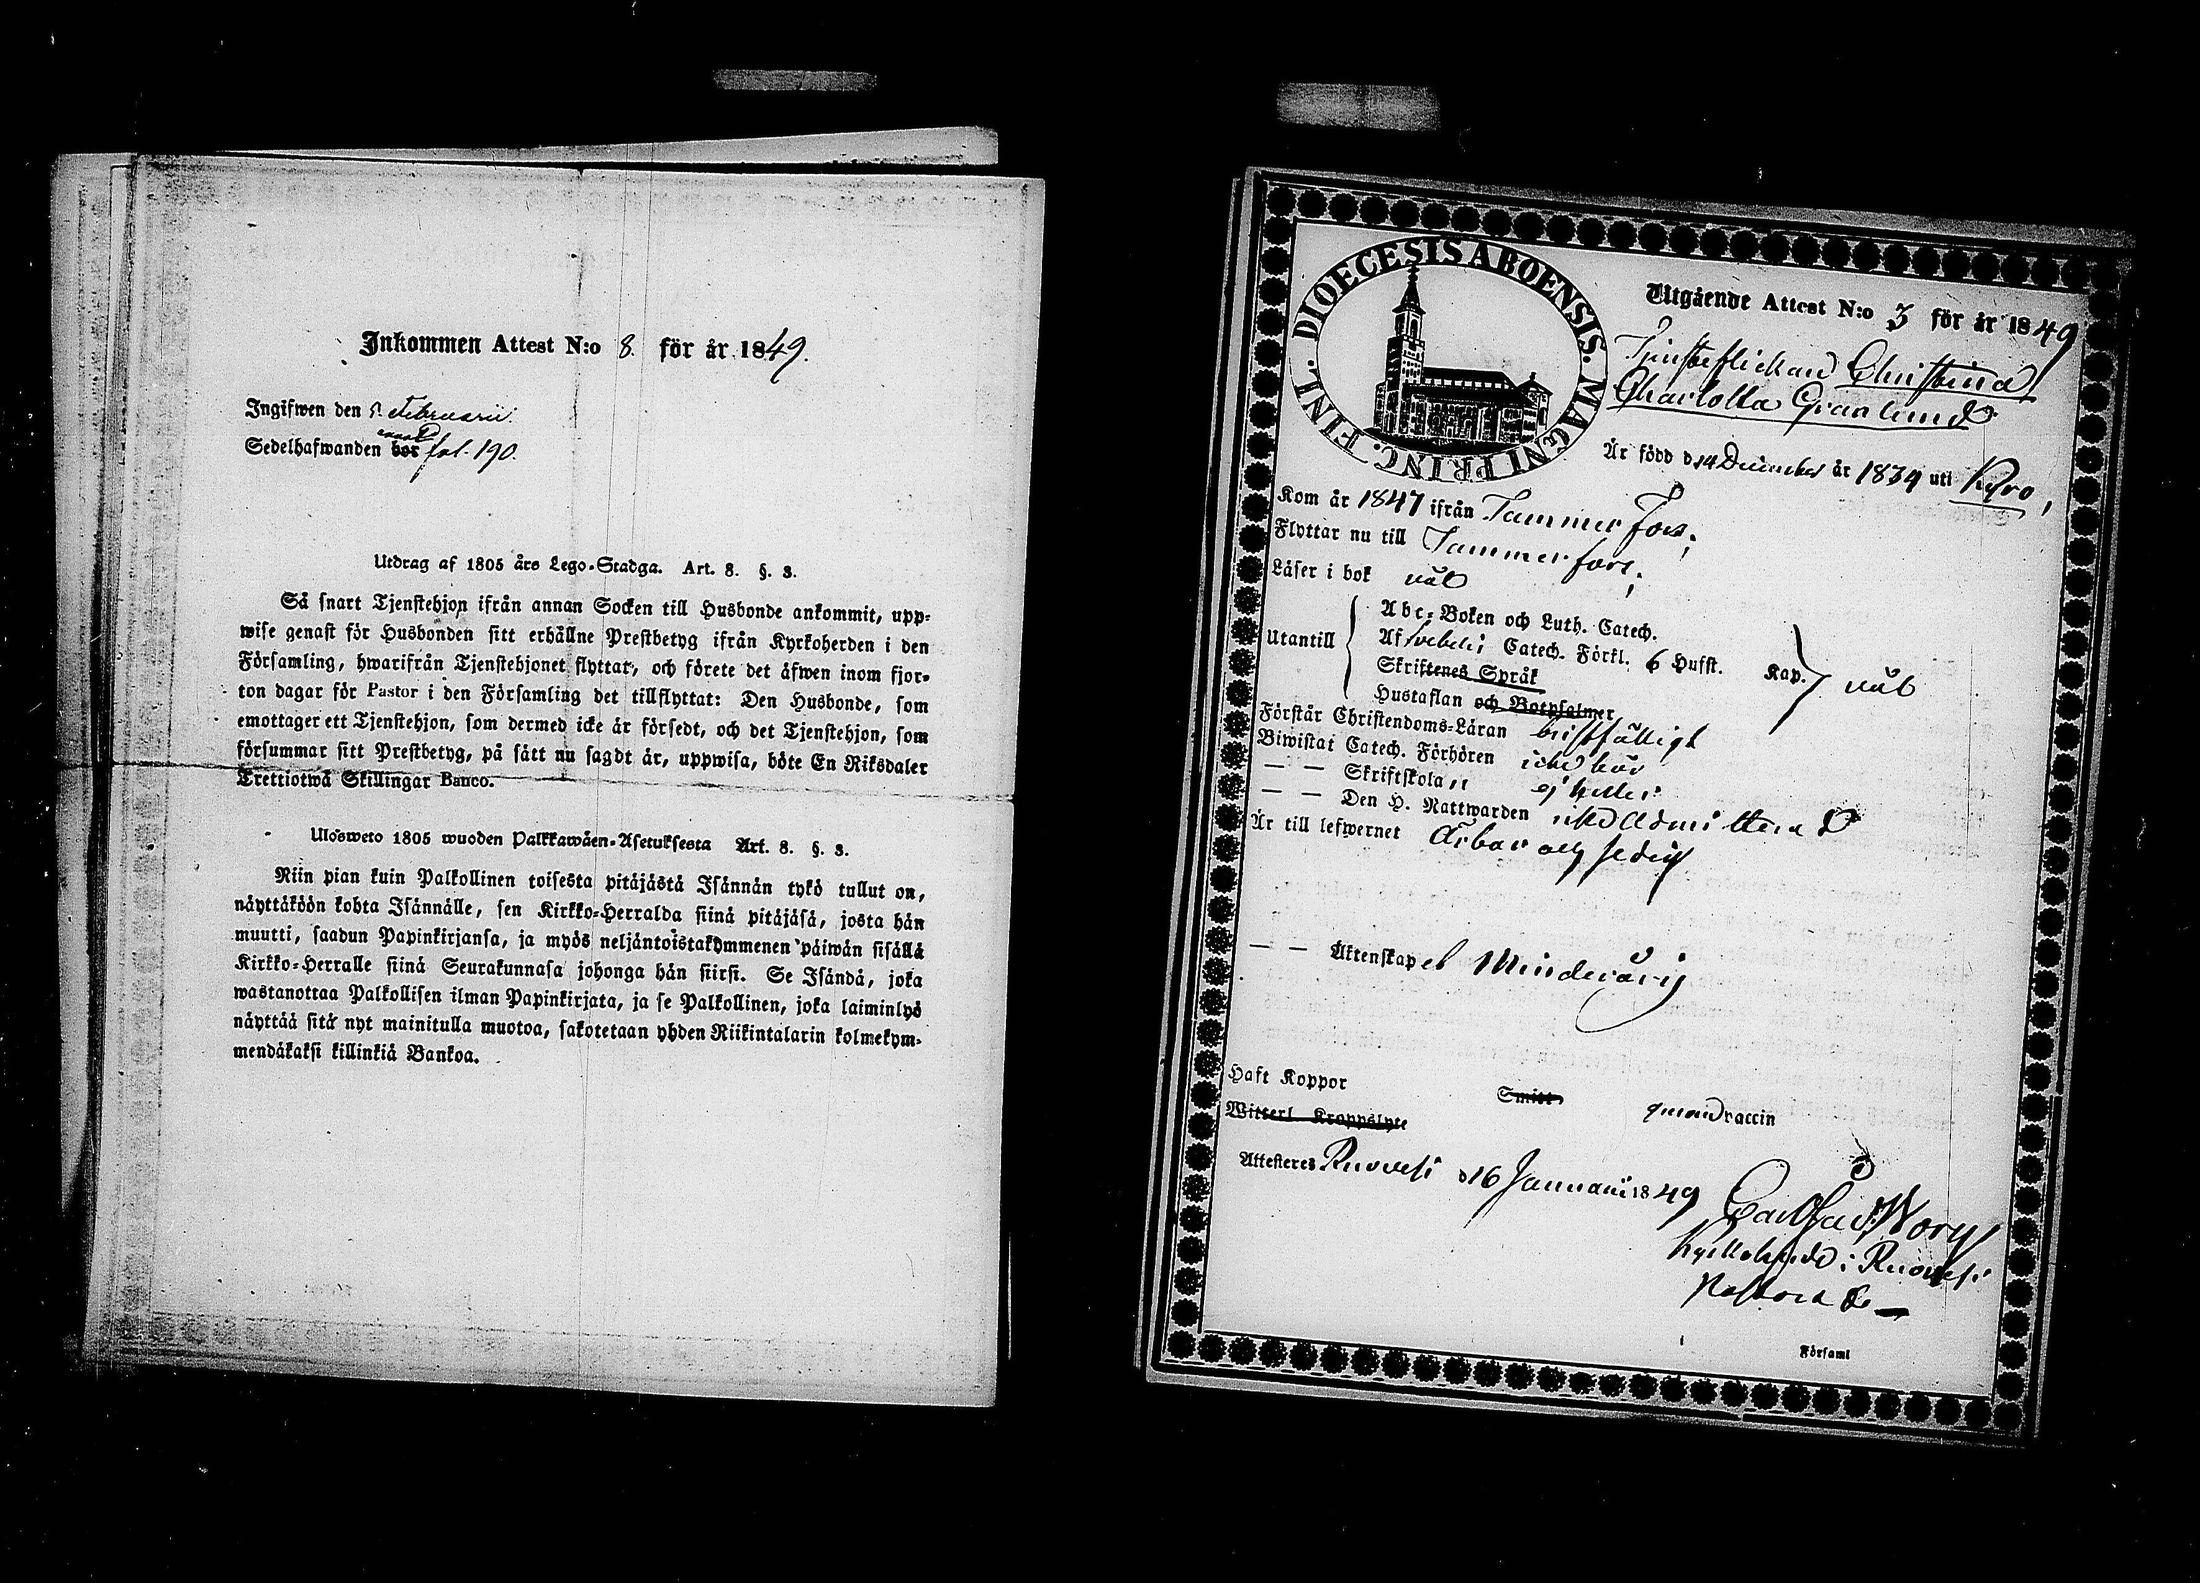 Inkommen Attest N:o 8. för år 1849.
Ingifwen den Februarii.
Sedelhafwanden bor fol. 190.
Utdrag af 1805 års Lego-Stadga. Art. 8. §. 3.
Så snart Tjenstehjon ifrån annan Socken till Husbonde ankommit, upp-
wise genast för Husbonden sitt erhållne Prestbetyg ifrån Kyrkoherden i den
Församling, hwarifrån Tjenstehjonet flyttat, och förete det äfwen inom fjor-
ton dagar för Pastor i den Församling det tillflyttat: Den Husbonde, som
emottager ett Tjenstehjon, som dermed icke är försedt, och det Tjenstehjon, som
försummar sitt Prestbetyg, på sätt nu sagdt är, uppwisa, böte En Riksdaler
Trettiotwå Skillingar Banco.
Ulosweto 1805 wuoden Palkkawäen-Asetuksesta Art. 8. §. 3.
Niin pian kuin Palkollinen toisesta pitäjästä Isännän tykö tullut on,
näyttäköön kohta Isännälle, sen Kirkko-Herralda siinä pitäjäsä, josta hän
muutti, saadun Papinkirjansa, ja myös neljäntoistakymmenen päiwän sisällä
Kirkko-Herralle siinä Seurakunnasa johonga hän siirsi. Se Isändä, joka
wastanottaa Palkollisen ilman Papinkirjata, ja se Palkollinen, joka laiminlyö
näyttää sitä nyt mainitulla muotoa, sakotetaan yhden Riikintalarin kolmekym-
mendäkaksi killinkiä Bankoa.
DIOECESIS ABOENSIS. MAGNI PRINC. FINL.
Utgående Attest N:o 3 för år 1849
Tjensteflickan Christina
Charlotta Granlund
Är född d 14 December år 1834 uti Kyro,
Kom år 1847 ifrån Tammerfors;
Flyttar nu till Tammerfors;
Läser i bok väl
Utantill
Abc-Boken och Luth. Catech.
Af Svebelii Catech. Förkl. 6 Hufst. Kap.
Skriftenes Språk
Hustaflan och Botpsalmer
väl
Förstår Christendoms-Läran bristfälligt
Biwistat Catech. Förhören icke här
— — Skriftskolan ej heller
— — Den H. Nattwarden icke admitterad
Är till lefwernet ärbar och sedig
— — Äktenskapet Minderårig
Haft Koppor Smitt. genom Vaccin
Witterl. Kroppslyte
Attesteres Ruovesi d 16 Januarii 1849
Kyrkoherde i Ruovesi
Pastorat
Församl